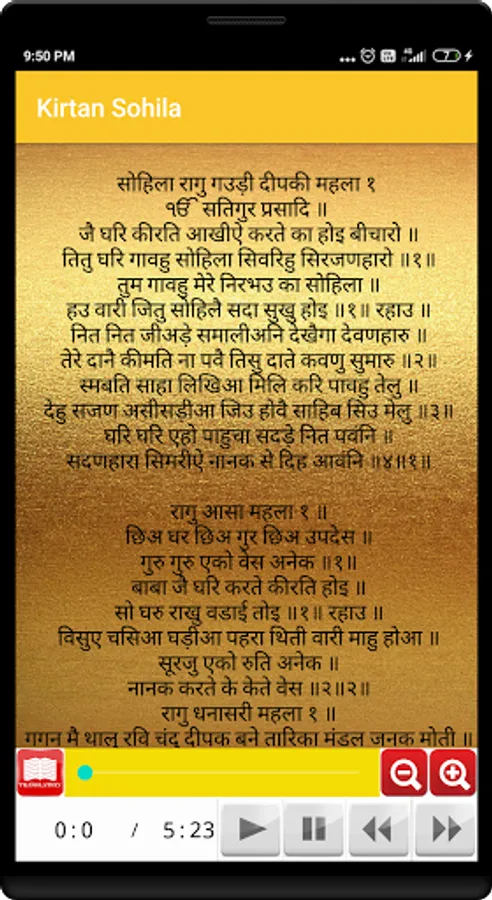 9:50 PM
Kirtan Sohila
सोहिला रागु गउड़ी दीपकी महला १
ੴ सतिगुर प्रसादि ॥
जै घरि कीरति आखीऐ करते का होइ बीचारो ॥
तितु घरि गावहु सोहिला सिवरिहु सिरजणहारो ॥१॥
तुम गावहु मेरे निरभउ का सोहिला ॥
हउ वारी जितु सोहिलै सदा सुखु होइ ॥१॥ रहाउ ॥
नित नित जीअड़े समालीअनि देखैगा देवणहारु ॥
तेरे दानै कीमति ना पवै तिसु दाते कवणु सुमारु ॥२॥
स्मबति साहा लिखिआ मिलि करि पावहु तेलु ॥
देहु सजण असीसड़ीआ जिउ होवै साहिब सिउ मेलु ॥३॥
घरि घरि एहो पाहुचा सदड़े नित पवंनि ॥
सदणहारा सिमरीऐ नानक से दिह आवंनि ॥४॥१॥
रागु आसा महला १ ॥
छिअ घर छिअ गुर छिअ उपदेस ॥
गुरु गुरु एको वेस अनेक ॥१॥
बाबा जै घरि करते कीरति होइ ॥
सो घरु राखु वडाई तोइ ॥१॥ रहाउ ॥
विसुए चसिआ घड़ीआ पहरा थिती वारी माहु होआ ॥
सूरजु एको रुति अनेक ॥
नानक करते के केते वेस ॥२॥२॥
रागु धनासरी महला १ ॥
गगन मै थालु रवि चंदु दीपक बने तारिका मंडल जनक मोती ॥
0:0 / 5:23